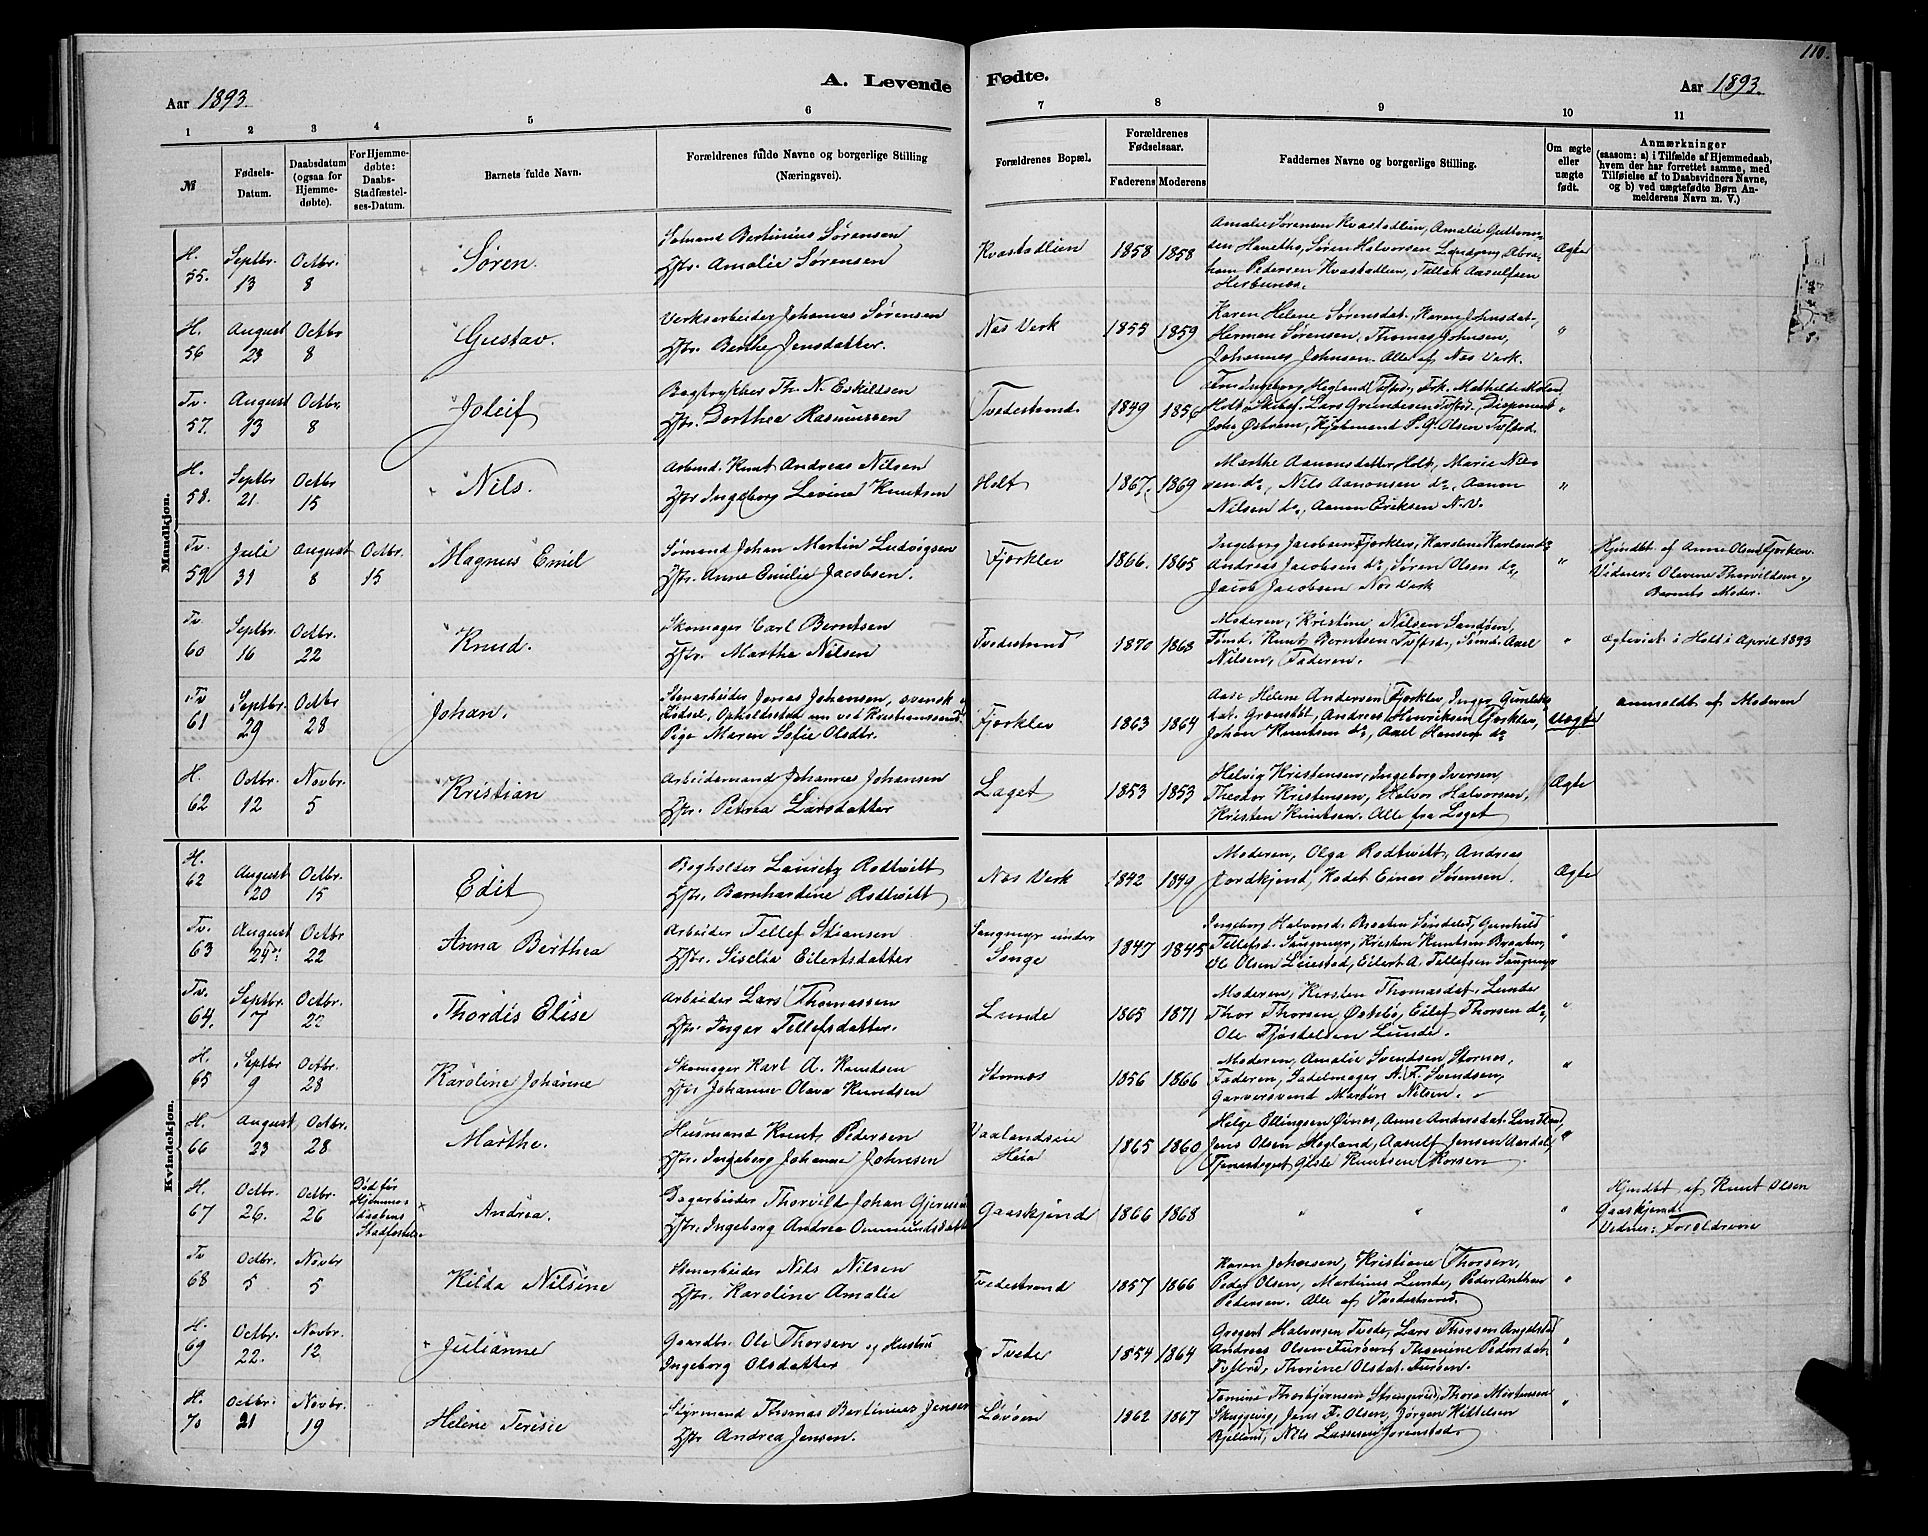 110.
A. Levende Fødte.
Aar 1893.
Aar 1893.
1 2 3 4 5 6 7 8 9 10 11
№
Fødsels-
Datum.
Daabsdatum
(ogsaa for
Hjemme-
døbte).
For Hjemme-
døbte:
Daabs-
Stadfæstel-
ses-Datum.
Barnets fulde Navn.
Forældrenes fulde Navne og borgerlige Stilling
(Næringsvei).
Forældrenes Bopæl.
Forældrenes
Fødselsaar.
Faderens Moderens
Faddernes Navne og borgerlige Stilling.
Om ægte
eller
uægte
født.
Anmærkninger
(saasom: a) i Tilfælde af Hjemmedaab,
hvem der har forrettet samme, med
Tilføielse af to Daabsvidners Navne,
og b) ved uægtefødte Børn An-
melderens Navn m. V.)
Mandkjøn.
H. 55. Septbr. 13 Octbr. 8 Søren.
Sømand Bertinius Sørensen
Hstr. Amalie Sørensen
Kvastadlien 1858 1858
Amalie Sørensen Kvastadlien, Amalie Guttorm-
sen Haneths, Søren Halvorsen Landgang, Abra-
ham Pedersen Kvastadlien, Tellak Aasulfsen
Ægte
H. 56 August 23 Octbr 8 Gustav.
Verksarbeider Johannes Sørensen
Hstr. Berthe Jensdatter.
Nas Verk 1855 1859
Karen Helene Sørensdat., Karen Johnsdat.,
Herman Sørensen, Thomas Johnsen,
Johannes Johnsen. Alle af Nas Verk.
"
Tv. 57. August 13 Octbr. 8 Joleif
Bogtrykker Th. N. Eskildsen
Hstr. Dorthea Rasmussen
Tvedestrand 1849 1856
Lars Gundersen Tvestrd.,
Kjøbmand P. G. Olsen Tvestrd.
"
H. 58. Septbr 21 Octbr 15 Nils.
Arbmd. Knut Andreas Nilsen
Hstr Ingeborg Levine Knutsen
Holt 1867. 1869
Marthe Aanonsdatter Holt, Marie Nil-
sen do, Nils Aanonsen do, Aanon
Nilsen do, Aanon Eriksen N.V.
"
Tv. 59 Juli 31 August 8 Octbr. 15 Magnus Emil
Sømand Johan Martin Ludvigsen
Hstr. Anne Emilie Jacobsen.
Fjorklev 1866. 1865
Ingeborg Jacobsen Fjorklev, Karoline Karlsen do
Andreas Jacobsen do, Søren Olsen do,
Jacob Jacobsen Nas Verk
"
Hjmdbt af Anne Olsen Fjorklev.
Vidner: Olevine Thorvildsen og
Barnets Moder.
Tv 60 Septbr. 16 Octbr. 22 Knud.
Skomager Carl Berntsen
Hstr. Marthe Nilsen
Tvedestrand 1870 1868
Moderen, Kristine Nilsen Sandøen,
Tømd. Knut Berntsen Tvestrd., Sømd. Axel
Nilsen, Faderen.
"
Ægteviet i Holt i April 1893
Tv 61 Septbr. 29 Octbr 28 Johan.
Stenarbeider Jonas Johansen, svensk
Fødsel, Opholdssted nu ved Kristianssund.
Pige Maren Sofie Olsdtr.
Fjorklev 1863 1864
Aase Helene Andersen Fjorklev, Inger Gunleks-
dat. Grønsbøt, Andreas Henriksen Fjorklev,
Johan Knutsen do, Axel Hansen do
Uægte
anmeldt af Moderen
H. 62 Octbr. 12 Novbr. 5 Kristian
Arbeidermand Johannes Johansen
Hstr. Petrea Larsdatter
Laget 1853 1853
Helvig Kristensen, Ingeborg Iversen,
Theodor Kristensen, Halvor Halvorsen,
Kristen Knutsen. Alle fra Laget
Ægte
Kvindekjøn.
H. 62 August 20 Octbr. 15 Edit
Bogholder Lauritz Rodtwitt
Hstr. Barnhardine Rodtwitt
Nas Verk 1842 1849
Moderen, Olga Rodtwitt, Andreas
Jordkjend, Kadet Einar Sørensen.
Ægte
Tv. 63 August 24de Octbr 22 Anna Berthea
Arbeider Tellef Stiansen
Hstr. Siselia Eilertsdatter
Saugmyr under
Songe
1847 1845
Ingeborg Halvorsd. Braaten Søndeled, Gunhild
Tellefsd. Saugmyr, Kristen Knutsen Braaten,
Ole Olsen Leiestad, Eilert A. Tellefsen Saugmyr
"
Tv. 64. Septbr. 7 Octbr. 22 Thordis Elise
Arbeider Lars Thomassen
Hstr. Inger Tellefsdatter.
Lunde 1865 1871
Moderen, Kirsten Thomasdat. Lunde
Thor Thorsen Østebø, Eilef Thorsen do,
Ole Fjøstelsen Lunde.
"
H. 65 Septbr 9 Octbr. 28 Karoline Johanne
Skomager Karl A. Knudsen
Hstr Johanne Olava Knudsen
Stornes 1856 1866
Moderen, Amalie Svendsen Stornes,
Faderen, Sadelmager A. F. Svendsen,
Garversvend Martin Nilsen.
"
H. 66 August 23 Octbr. 28 Marthe.
Husmand Knut Pedersen
Hstr. Ingeborg Johanne Johnsen
Vaalandseie
Heia
1865 1860
Helge Ellingsen Øines, Anne Andersdat. Lundlien,
Jens Olsen Høgland, Aasult Jensen Uardal,
Tjenestegut Gisle Knutsen Korsen
"
H. 67 Octbr. 26. Octbr. 26
Død før
Hjemme-
daabens
Stadfæstelse
Andrea.
Dagarbeider Thorvild Johan Gjermund
Hstr. Ingeborg Andrea Ommundsdatter
Gaaskjend 1866 1868
" "
"
Hjmdbt af Knut Olsen
Gaaskjend.
Vidner: Forældrene
Tv 68 Octbr. 5 Novbr 5 Hilda Nilsine
Stenarbeider Nils Nilsen
Hstr. Karoline Amalie
Tvedestrand 1857 1866
Karen Johnsen, Kristiane Thorsen,
Peder Olsen, Martinus Lunde, Peder Anthon
Pedersen. Alle af Tvedestrand.
"
H. 69 Octbr. 22. Novbr. 12 Julianne
Gaardbr. Ole Thorsen og Hustru
Ingeborg Olsdatter
Tvede 1854 1864
Gregert Halvorsen Tvede, Lars Thorsen Angelstad
Andreas Olsen Furøen, Thomine Pedersdat.
Tvestrd, Thorine Olsdat. Furøen.
"
H. 70 Octbr. 21 Novbr. 19 Helene Teresie
Styrmand Thomas Bertinius Jensen
Hstr Andrea Jensen.
Løvøen 1862 1867
Tomine Thorbjørnsen Strengereid, Thora Mortensen
Skuggevig, Jens F. Olsen, Jørgen Kittelsen
Bjelland, Nils Lassesen Jorenstad.
"